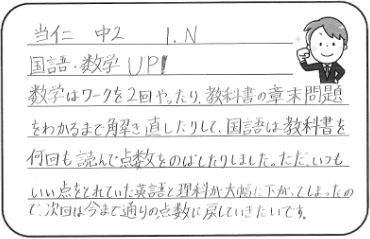 当仁 中2 I.N
国語・数学 UP!
数学はワークを2回やったり、教科書の章末問題
をわかるまで解き直したりして、国語は教科書を
何回も読んで点数をのばしたりしました。ただ、いつも
いい点をとれていた英語と理科が大幅に下がってしまったの
で、次回は今まで通りの点数に戻していきたいです。